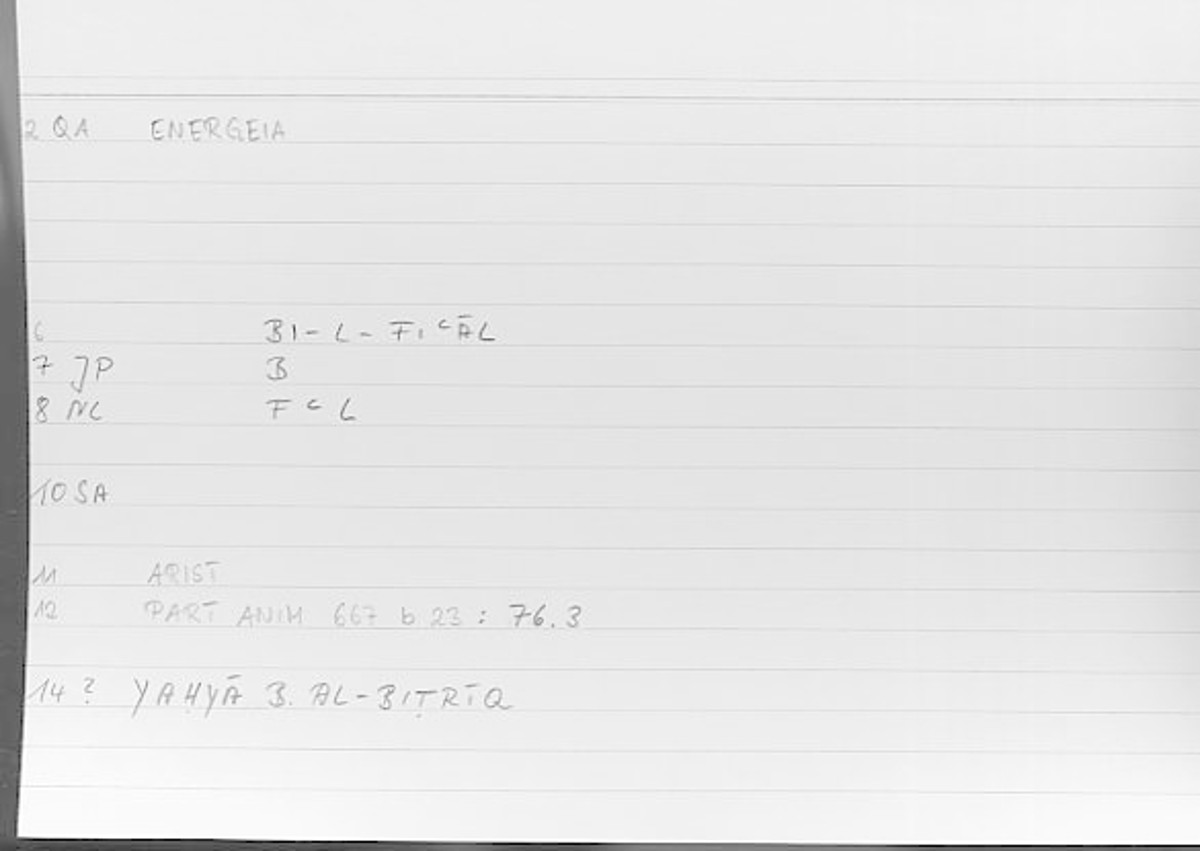 2 QA ENERGEIA
6 BI-L-FIʿĀL
7 JP B
8 NL F ʿ L
10 SA
11 ARIST
12 PART ANIM 667 b 23 : 76.3
14 ? YAḤYĀ B. AL-BIṬRĪQ